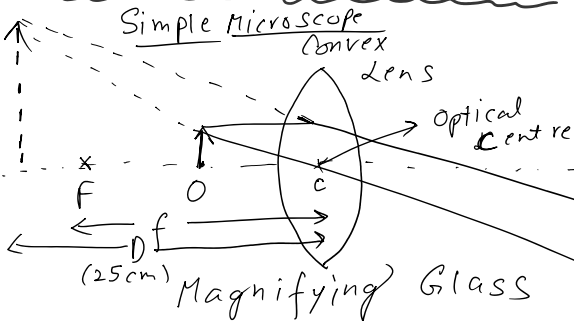 Simple Microscope
Convex
Lens
Optical
Centre
F
O
C
f
D
(25cm)
Magnifying Glass